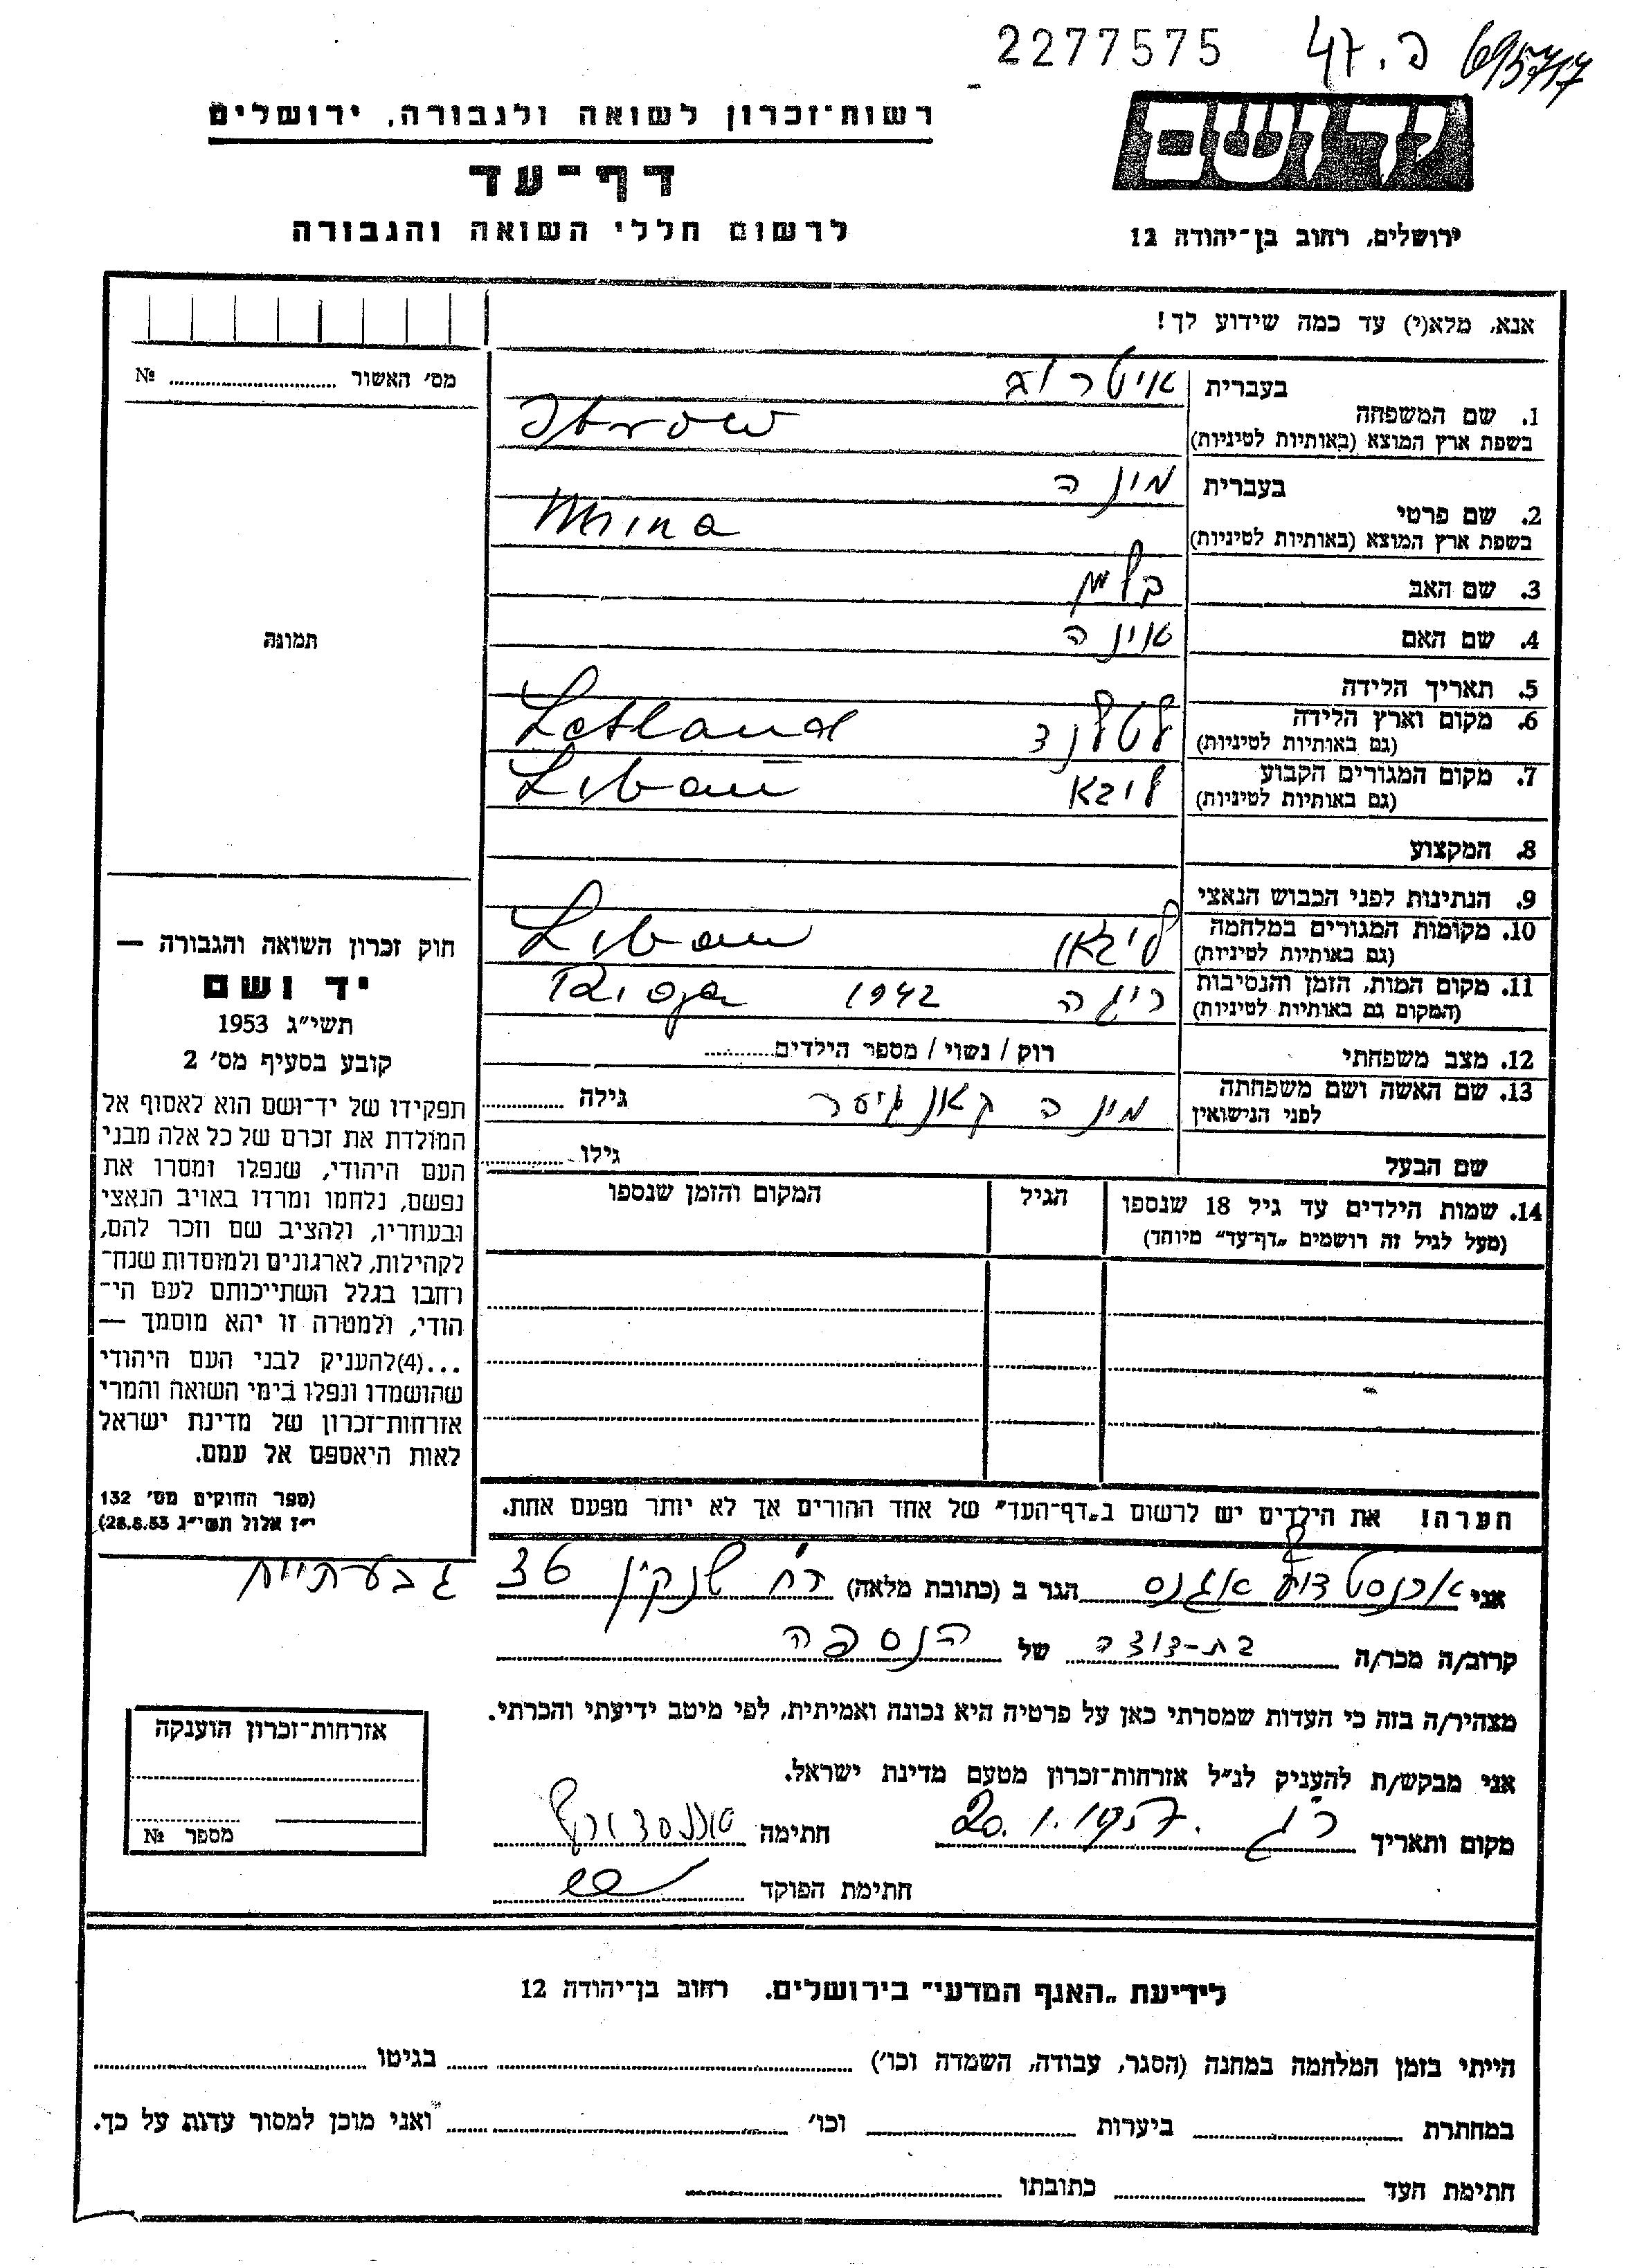 2277575 47.פ 695717
רשות־זכרון לשואה ולגבורה, ירושלים
ידושם
דף־עד
לרשום חללי השואה והגבורה
ירושלים, רחוב בן־יהודה 12
אנא, מלא(י) עד כמה שידוע לך!
מס׳ האשור № ....................
בעברית איטרוב
1. שם המשפחה
בשפת ארץ המוצא (באותיות לטיניות) Itrow
בעברית מינה
2. שם פרטי
בשפת ארץ המוצא (באותיות לטיניות) Mina
3. שם האב
4. שם האם
תמונה
5. תאריך הלידה
6. מקום וארץ הלידה לטלנד Letland
(גם באותיות לטיניות)
7. מקום המגורים הקבוע ליבא Libau
(גם באותיות לטיניות)
8. המקצוע
9. הנתינות לפני הכבוש הנאצי
10. מקומות המגורים במלחמה ליבאו Libau
(גם באותיות לטיניות)
11. מקום המות, הזמן והנסיבות ריגה 1942 Riga
(המקום גם באותיות לטיניות)
12. מצב משפחתי רוק / נשוי / מספר הילדים..........
13. שם האשה ושם משפחתה מינה גילה ..........
לפני הנישואין
שם הבעל גילו ..........
14. שמות הילדים עד גיל 18 שנספו הגיל המקום והזמן שנספו
(מעל לגיל זה רושמים „דף־עד״ מיוחד)
חוק זכרון השואה והגבורה —
יד ושם
תשי״ג 1953
קובע בסעיף מס׳ 2
תפקידו של יד־ושם הוא לאסוף אל
המולדת את זכרם של כל אלה מבני
העם היהודי, שנפלו ומסרו את
נפשם, נלחמו ומרדו באויב הנאצי
ובעוזריו, ולהציב שם וזכר להם,
לקהילות, לארגונים ולמוסדות שנח־
רחבו בגלל השתייכותם לעם הי־
הודי, ולמטרה זו יהא מוסמך —
...(4)להעניק לבני העם היהודי
שהושמדו ונפלו בימי השואה והמרי
אזרחות־זכרון של מדינת ישראל
לאות היאספם אל עמם.
(ספר החוקים מס׳ 132
י״ז אלול תשי״ג 28.8.53)
הערה! את הילדים יש לרשום ב„דף־העד״ של אחד ההורים אך לא יותר מפעם אחת.
אני אגנס הגר ב (כתובת מלאה) רח שנקין 36 גבעתיים
קרוב/ה מכר/ה בת-דודה של הנספה
מצהיר/ה בזה כי העדות שמסרתי כאן על פרטיה היא נכונה ואמיתית, לפי מיטב ידיעתי והכרתי.
אני מבקש/ת להעניק לנ״ל אזרחות־זכרון מטעם מדינת ישראל.
מקום ותאריך ר״ג 20.1.1957. חתימה
חתימת הפוקד
אזרחות־זכרון הוענקה
מספר №
לידיעת „האגף המדעי״ בירושלים. רחוב בן־יהודה 12
הייתי בזמן המלחמה במחנה (הסגר, עבודה, השמדה וכו׳) .......... בגיטו ..........
במחתרת .......... ביערות .......... וכו׳ .......... ואני מוכן למסור עדות על כך.
חתימת העד .......... כתובתו ..........